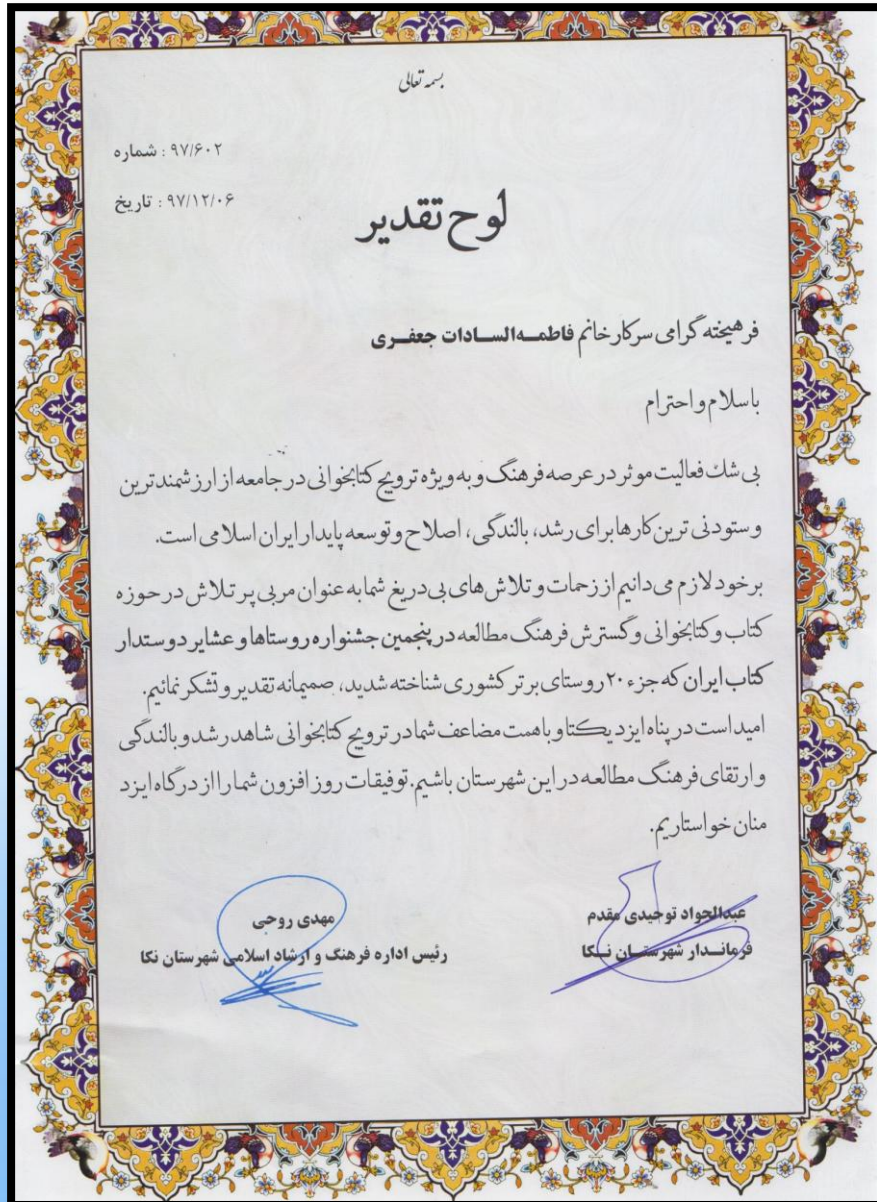 بسمه تعالی
شماره : ۹۷/۶۰۲
تاریخ : ۹۷/۱۲/۰۶
لوح تقدیر
فرهیخته گرامی سرکار خانم فاطمه‌السادات جعفری
با سلام و احترام
بی شك فعالیت موثر در عرصه فرهنگ و به ویژه ترویج کتابخوانی در جامعه از ارزشمندترین
و ستودنی ترین کارها برای رشد، بالندگی، اصلاح و توسعه پایدار ایران اسلامی است.
بر خود لازم می‌دانیم از زحمات و تلاش‌های بی‌دریغ شما به عنوان مربی پر تلاش در حوزه
کتاب و کتابخوانی و گسترش فرهنگ مطالعه در پنجمین جشنواره روستاها و عشایر دوستدار
کتاب ایران که جزء ۲۰ روستای برتر کشوری شناخته شدید، صمیمانه تقدیر و تشکر نمائیم.
امید است در پناه ایزد یکتا و با همت مضاعف شما در ترویج کتابخوانی شاهد رشد و بالندگی
و ارتقای فرهنگ مطالعه در این شهرستان باشیم. توفیقات روز افزون شما را از درگاه ایزد
منان خواستاریم.
عبدالجواد توحیدی مقدم
فرماندار شهرستان نکا
مهدی روحی
رئیس اداره فرهنگ و ارشاد اسلامی شهرستان نکا